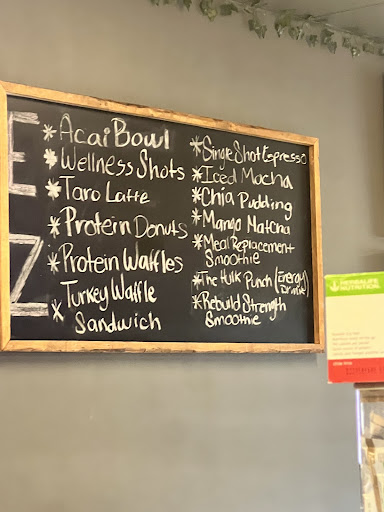 E
Z
* Acai Bowl
* Wellness Shots
* Taro Latte
* Protein Donuts
* Protein Waffles
* Turkey Waffle
Sandwich
* Single Shot Espresso
* Iced Mocha
* Chia Pudding
* Mango Matcha
* Meal Replacement
Smoothie
* The Hulk Punch (Energy
Drink)
* Rebuild Strength
Smoothie
HERBALIFE
NUTRITION